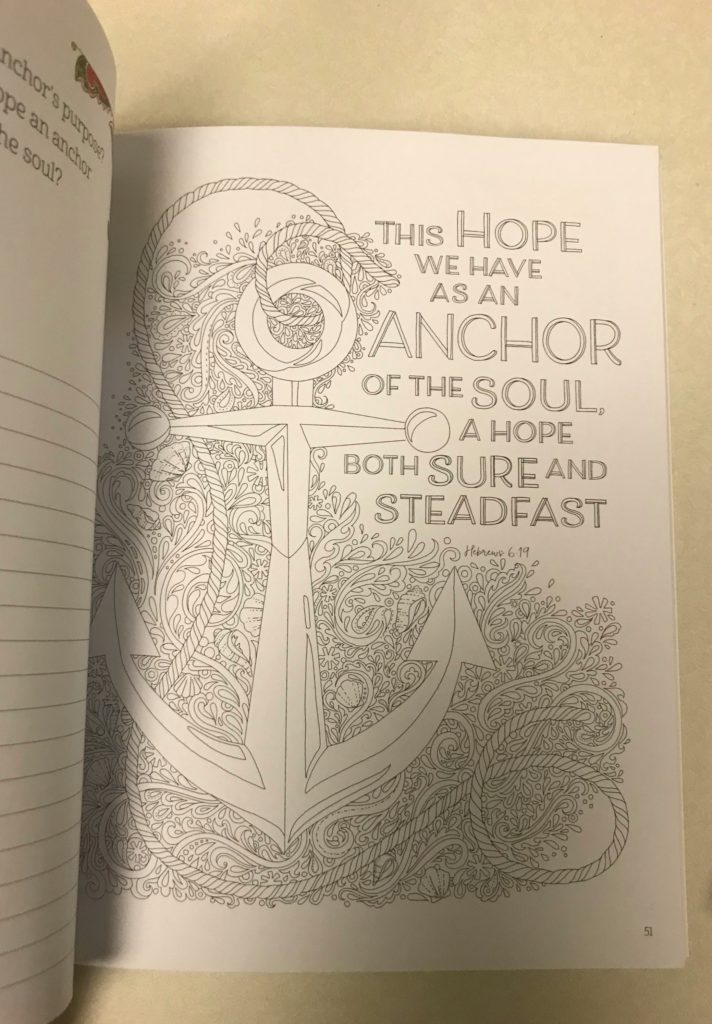 nchor's purpose?
ope an anchor
he soul?
THIS HOPE
WE HAVE
AS AN
ANCHOR
OF THE SOUL,
A HOPE
BOTH SURE AND
STEADFAST
Hebrews 6:19
51